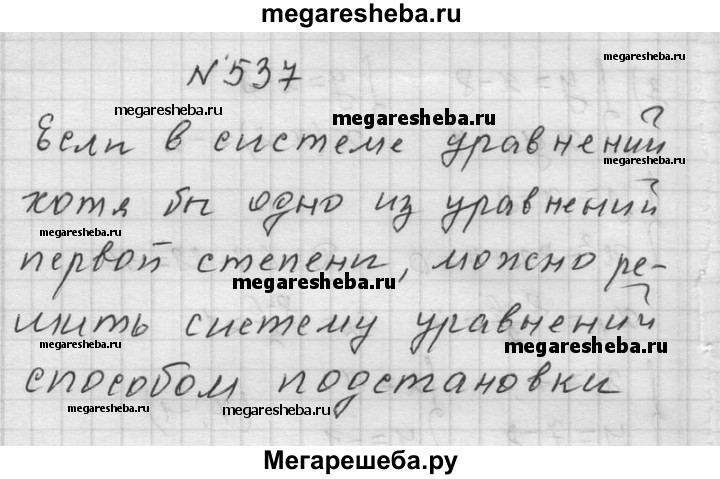 megaresheba.ru
№537
megaresheba.ru
megaresheba.ru
megaresheba.ru
Если в системе уравнений
megaresheba.ru
хотя бы одно из уравнений
megaresheba.ru
первой степени, можно ре-
megaresheba.ru
шить систему уравнений
megaresheba.ru
megaresheba.ru
способом подстановки
megaresheba.ru
megaresheba.ru
Мегарешеба.ру